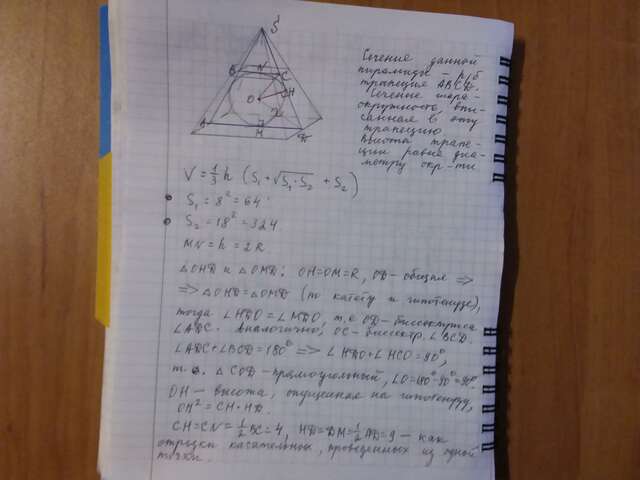 S
B N C
H
O
A M D
Сечение данной
пирамиды – р/б
трапеция ABCD.
Сечение шара –
окружность, впи-
санная в эту
трапецию.
Высота трапе-
ции равна диа-
метру окр-ти
V = 1/3 h (S₁ + √S₁·S₂ + S₂)
S₁ = 8² = 64
S₂ = 18² = 324
MN = h = 2R
△OHD и △OMD: OH=OM=R, OD – общая ⇒
⇒ △OHD = △OMD (по катету и гипотенузе),
тогда ∠HDO = ∠MDO, т.е OD – биссектриса
∠ADC. Аналогично, OC – биссектр. ∠BCD.
∠ADC+∠BCD=180° ⇒ ∠HDO+∠HCO=90°,
т.е. △COD – прямоугольный, ∠O=180°-90°=90°.
OH – высота, опущенная на гипотенузу,
OH² = CH·HD.
CH=CN=1/2 BC=4, HD=DM=1/2 AD=9 – как
отрезки касательных, проведенных из одной
точки.